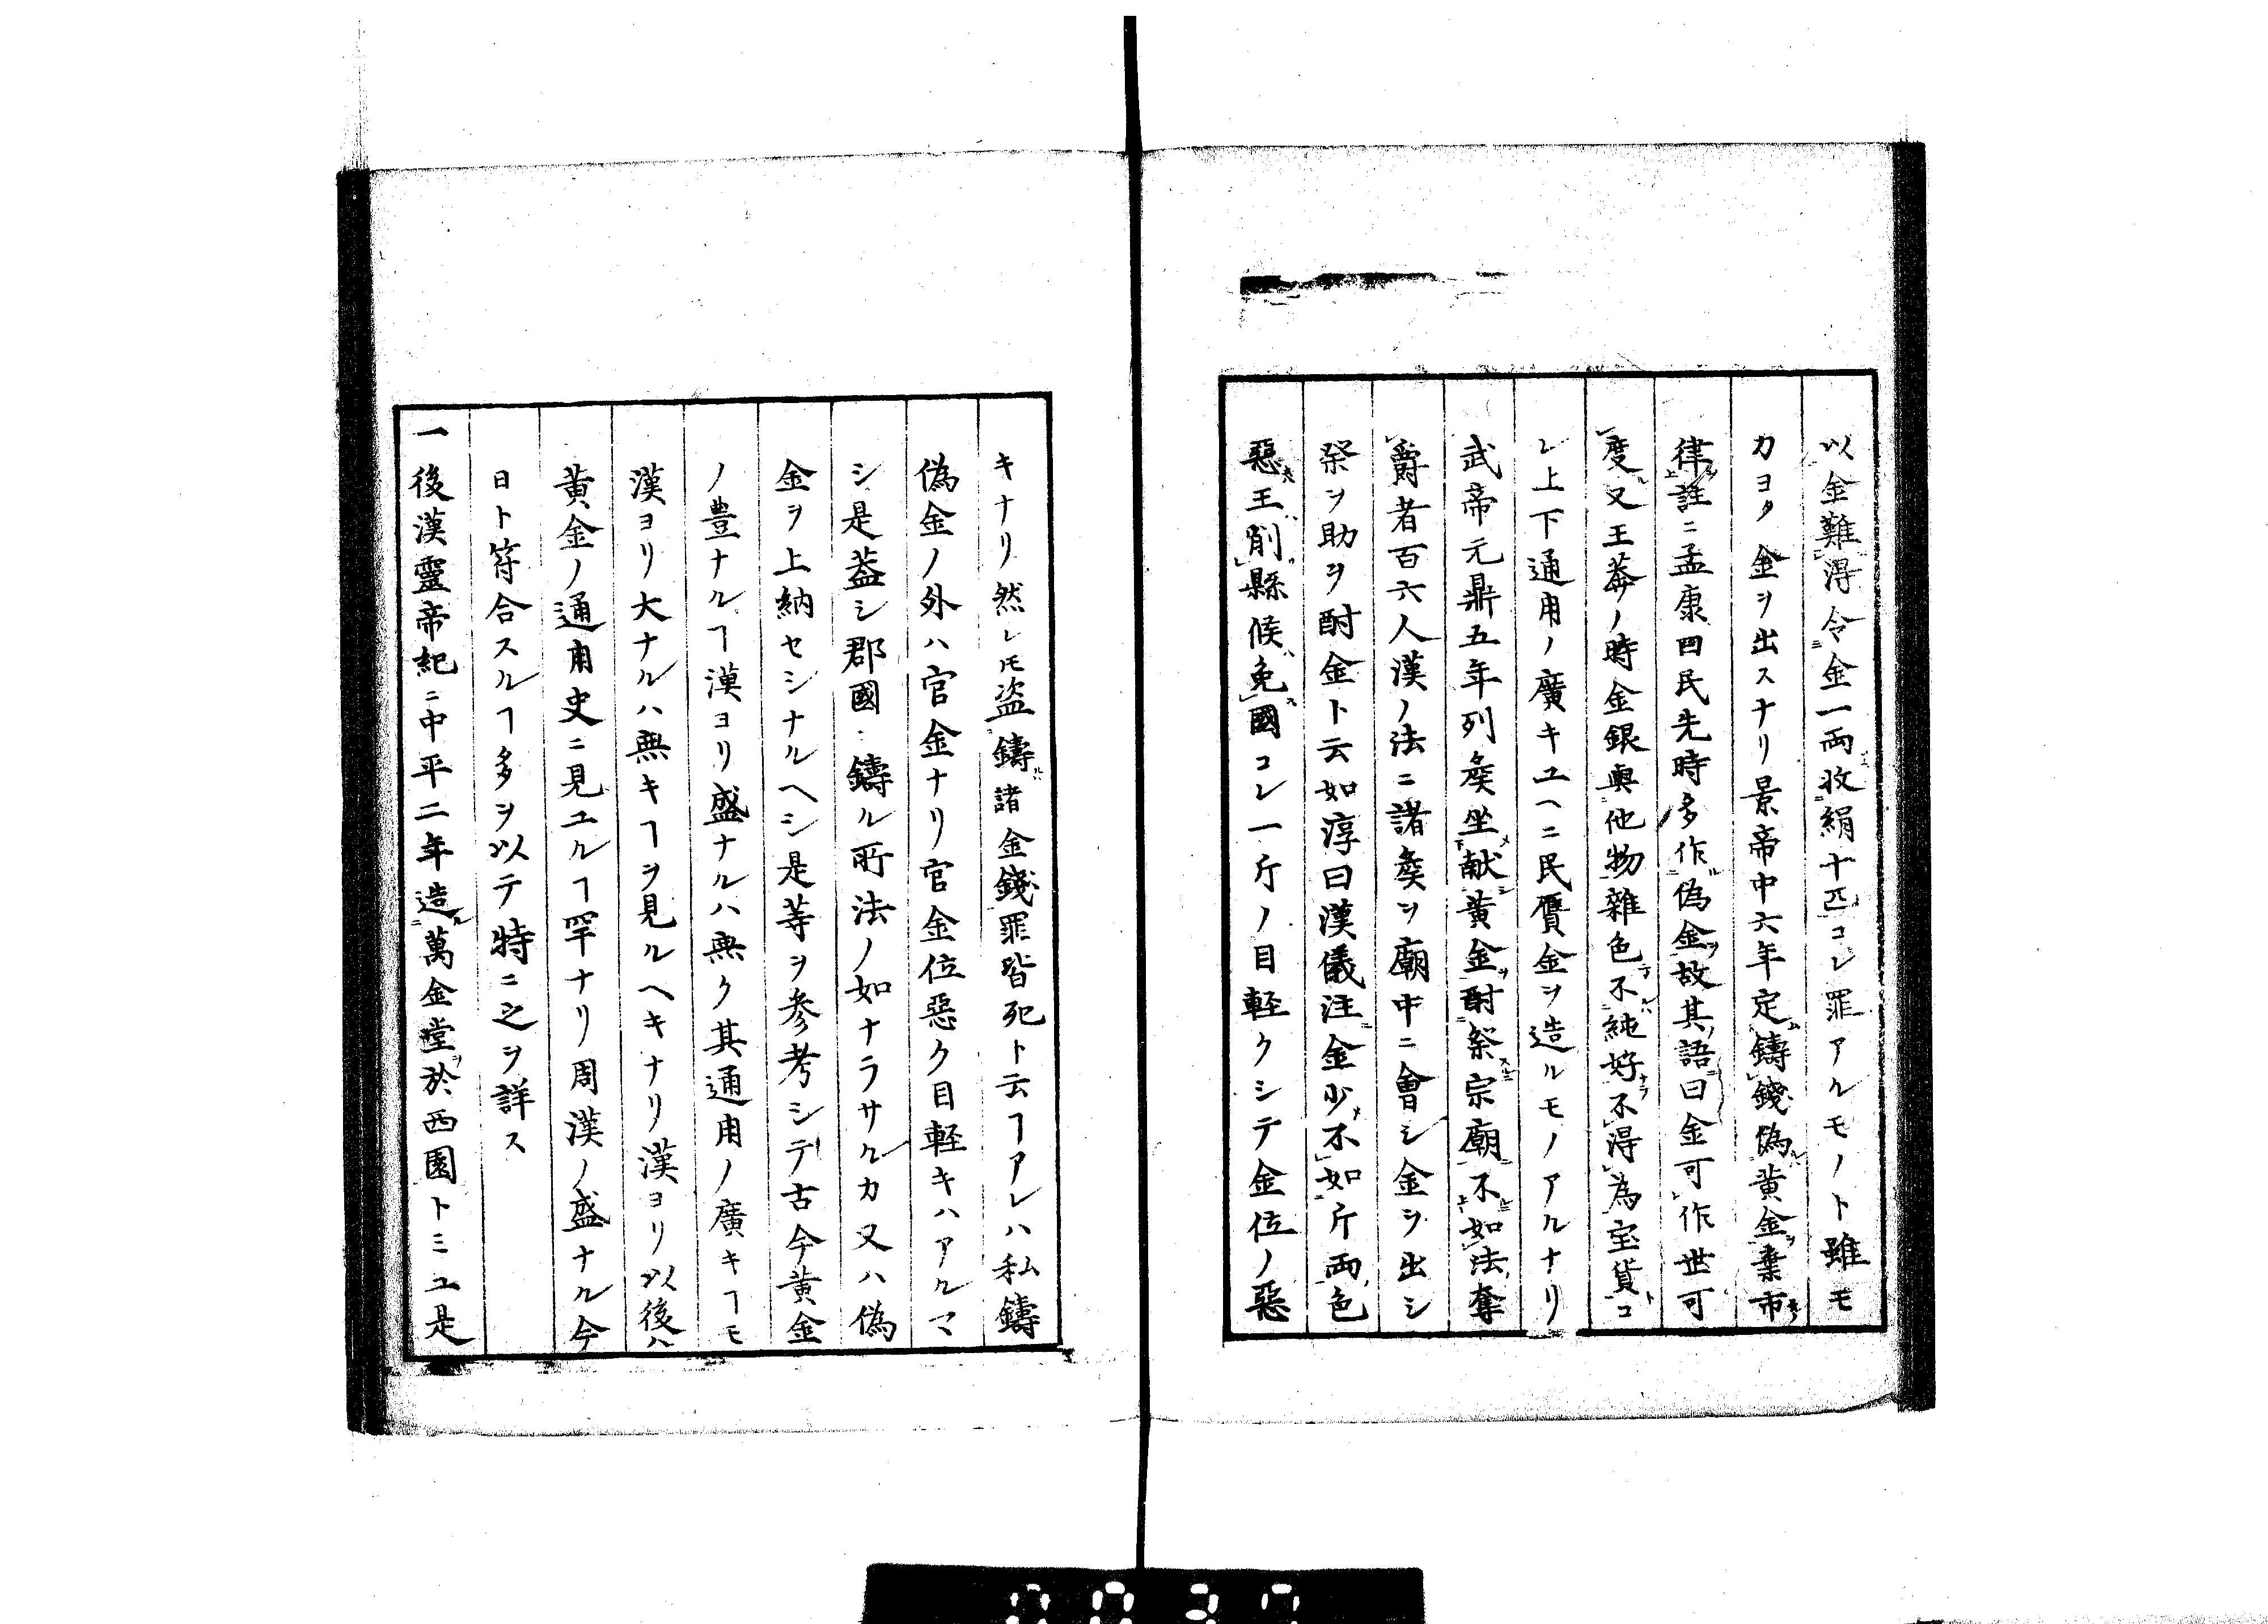 以金難得令金一両收絹十匹コレ罪アルモノト雖モ
カヨク金ヲ出スナリ景帝中六年定鑄錢偽黄金棄市
律註ニ孟康曰民先時多作偽金故其語曰金可作世可
度又王莽ノ時金銀與他物雜色不純好不得為宝貨コ
レ上下通用ノ廣キユヘニ民贋金ヲ造ルモノアルナリ
武帝元鼎五年列矦坐献黄金酎祭宗廟不如法奪
爵者百六人漢ノ法ニ諸矦ヲ廟中ニ會シ金ヲ出シ
祭ヲ助ヲ酎金ト云如淳曰漢儀注金少不如斤両色
惡王削縣候免國コレ一斤ノ目軽クシテ金位ノ惡
キナリ然レ𪜈盗鑄諸金錢罪皆死ト云ヿアレハ私鑄
偽金ノ外ハ官金ナリ官金位惡ク目軽キハアルマ
シ是葢シ郡國鑄ル所法ノ如ナラサルカ又ハ偽
金ヲ上納セシナルヘシ是等ヲ参考シテ古今黄金
ノ豊ナルヿ漢ヨリ盛ナルハ無ク其通用ノ廣キヿモ
漢ヨリ大ナルハ無キヿヲ見ルヘキナリ漢ヨリ以後ハ
黄金ノ通用史ニ見ユルヿ罕ナリ周漢ノ盛ナル今
日ト符合スルヿ多ヲ以テ特ニ之ヲ詳ス
一後漢靈帝紀ニ中平二年造萬金堂於西園トミユ是